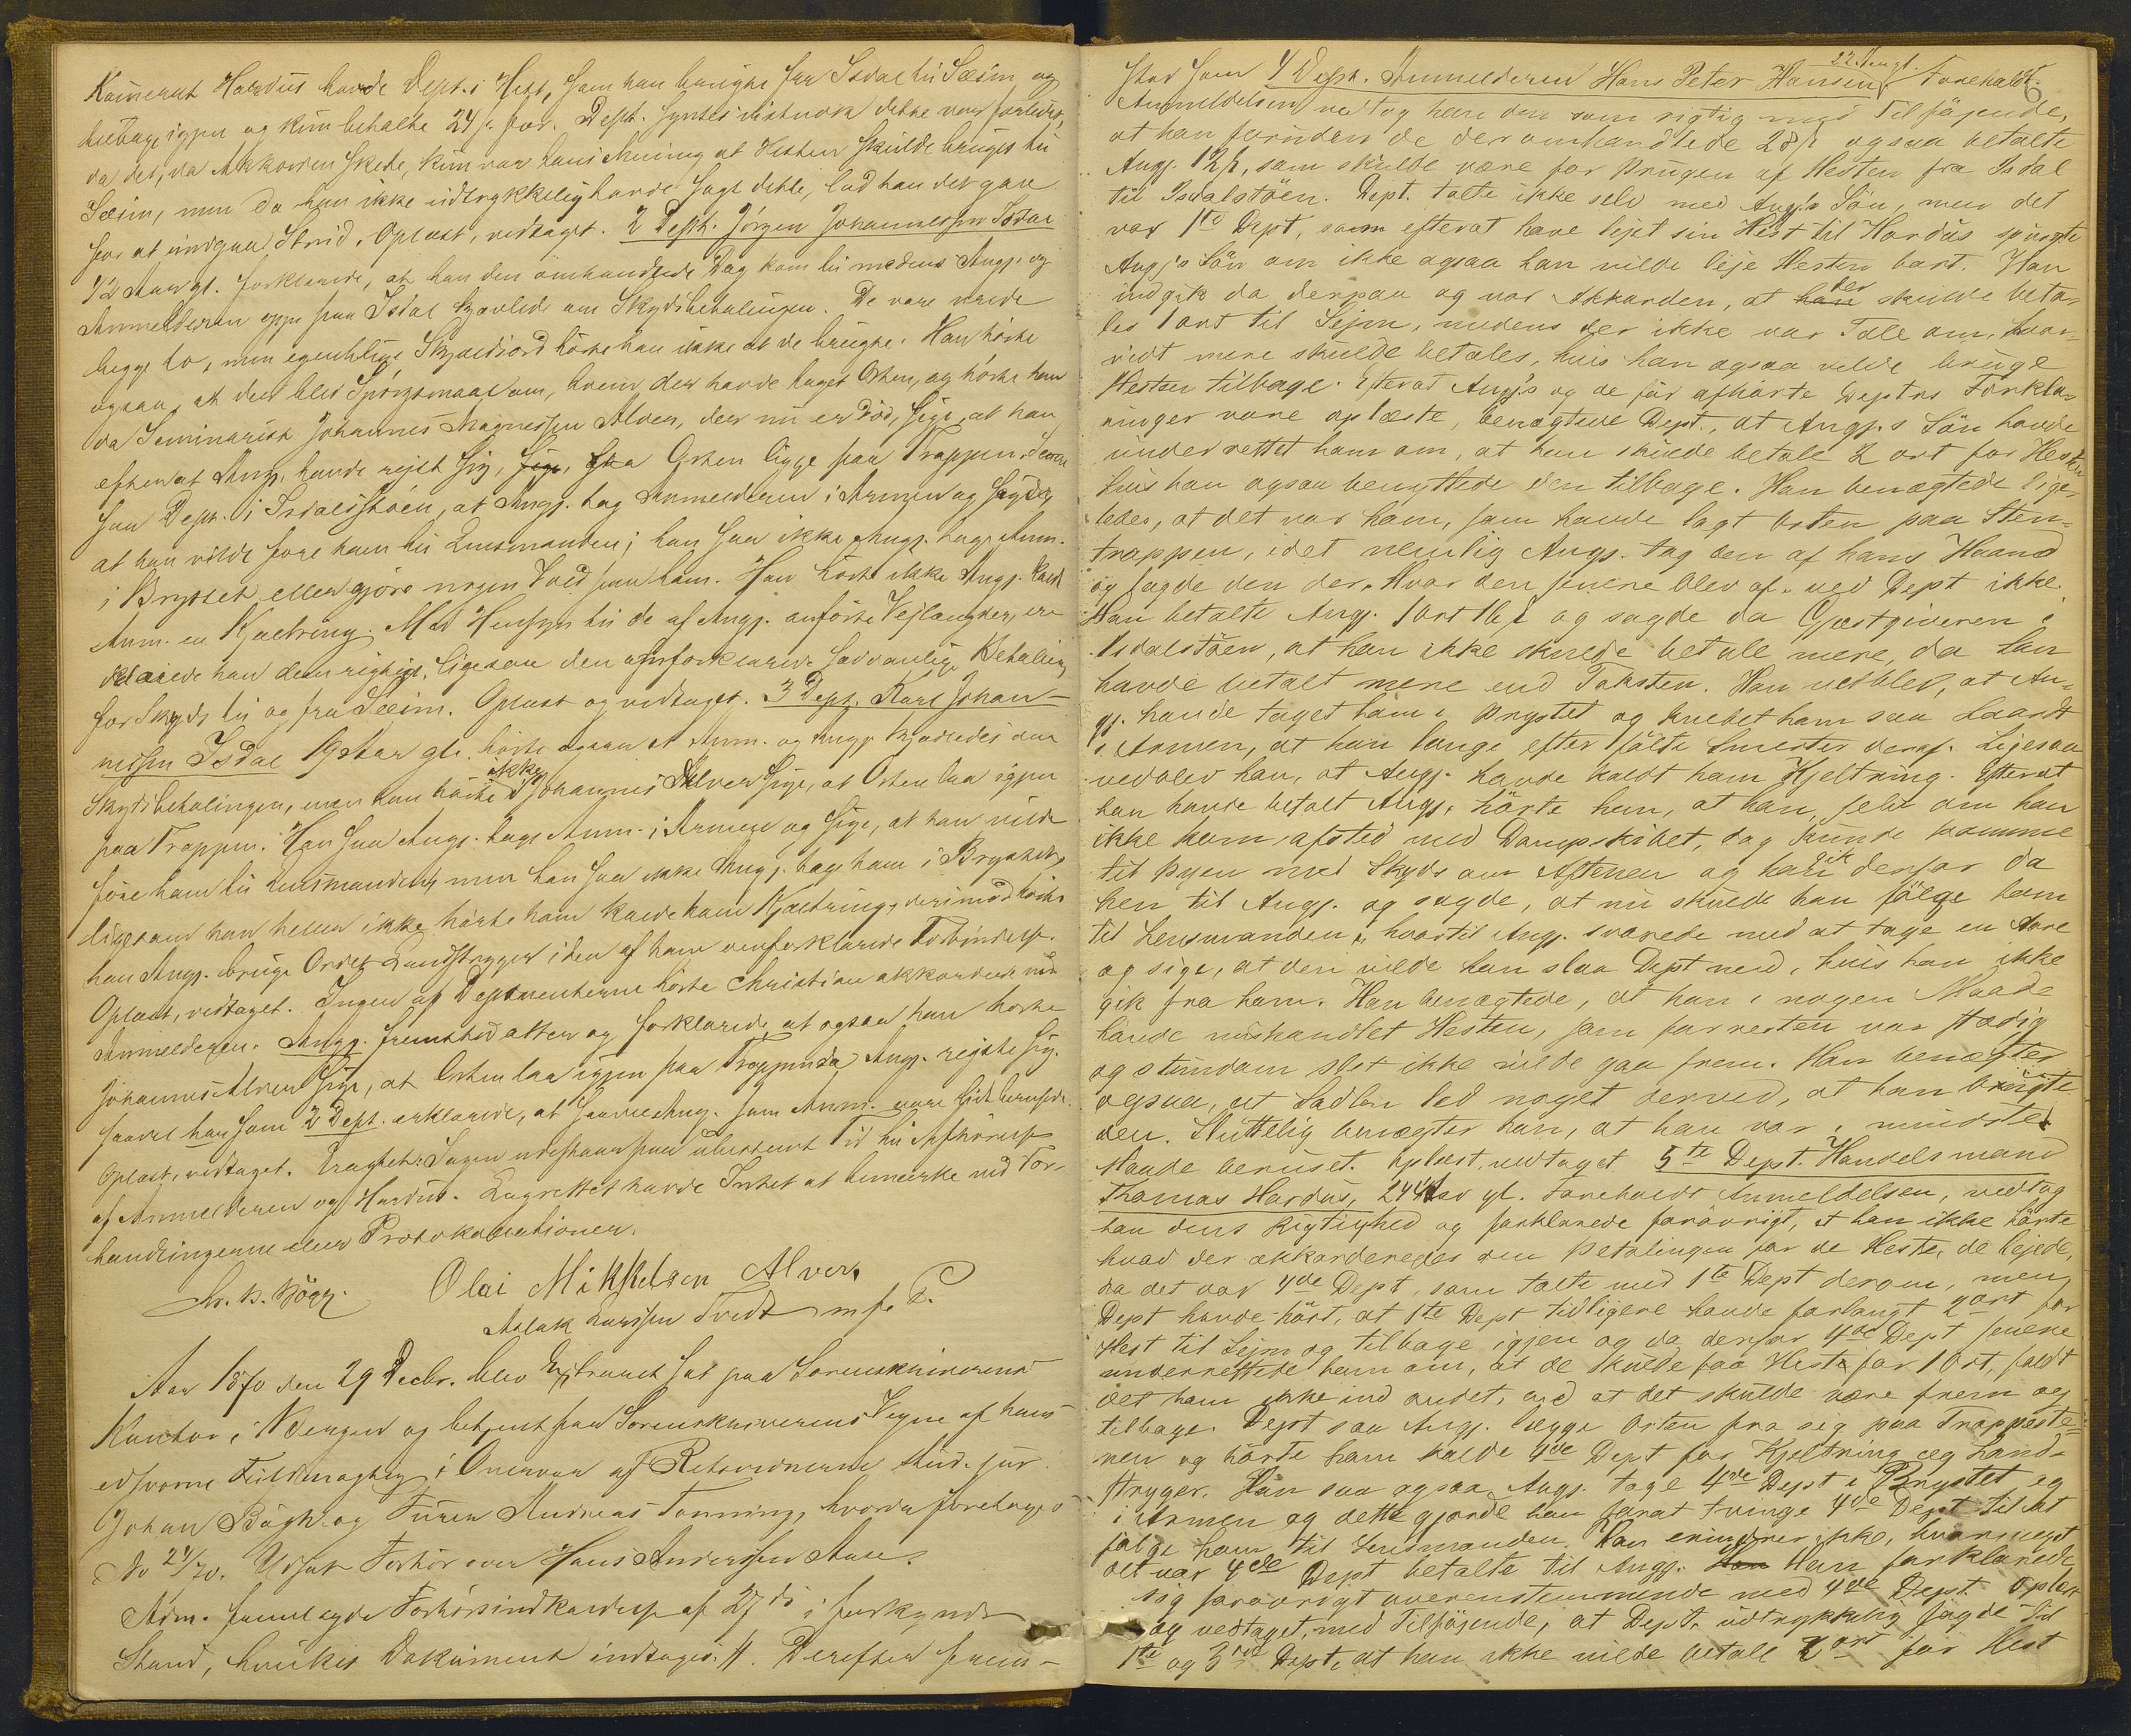 Kamerat Hordus havde Dept.s Hest, som han brugte fra Isdal til Seim og
tilbage igjen og kun betalte 24 s. for. Dept. syntes vistnok dette var forlidet,
da det, da Akkorden skede, kun var hans Mening at Hesten skulde bruges til
Seim, men da han ikke udtrykkelig havde sagt dette, lod han det gaa
for at undgaa Strid. Oplæst, vedtaget. 2 Dept. Jørgen Johannessen Isdal
42 Aar gl. forklarede, at han den omhandlede Dag kom til medens Angj. og
Anmelderen oppe paa Isdal kjævlede om Skydsbetalingen. De vare vrede
begge to, men egentlige Skjældsord hørte han ikke at de brugte. Han hørte
ogsaa, at der blev Spørgsmaal om, hvem der havde taget Orten, og hørte han
da Seminarist Johannes Magnessen Alver, der nu er død, sige, at han
efterat Angj. havde rejst sig, saa Orten ligge paa Trappen. Senere
saa Dept. i Isdalstøen, at Angj. tog Anmelderen i Armen og sagde,
at han vilde føre ham til Lensmanden; han saa ikke Angj. tage Anm.
i Brystet eller gjøre nogen Vold paa ham. Han hørte ikke Angj. kalde
Anm. en Kjæltring. Med Hensyn til de af Angj. anførte Vejlængder, er-
klærede han dem rigtige, ligesaa den af forklarede sædvanlige Betaling
for Skyds til og fra Seim. Oplæst og vedtaget. 3 Dept. Karl Johan-
nessen Isdal 19 Aar gl. hørte ogsaa at Anm. og Angj. kjævledes om
Skydsbetalingen, men han hørte ikke Johannes Alver sige, at Orten laa igjen
paa Trappen. Han saa Angj. tage Anm. i Armen og sige, at han vilde
føre ham til Lensmanden, men han saa ikke Angj. tog ham i Brystet,
ligesom han heller ikke hørte ham kalde ham Kjæltring, derimod hørte
han Angj. bruge Ordet Landstryger i den af ham selv forklarede Forbindelse.
Oplæst, vedtaget. Ingen af Deponenterne hørte Christian akkordere med
Anmelderen. Angj. fremstod atter og forklarede, at ogsaa han hørte
Johannes Alver sige, at Orten laa igjen paa Trappen da Angj. rejste sig.
Saavel han som 2 Dept. erklærede, at saavel Angj. som Anm. vare lidt berusede.
Oplæst, vedtaget. Eragtet: Sagen udestaar paa ubestemt Tid til Afhørelse
af Anmelderen og Hordus. Lagrettet havde Intet at bemærke ved For-
handlingerne eller Protokollationen.
Olai Mikkelsen Alver.
Aslak Larssen Tvedt m. f. P.
Aar 1870 den 29 Decbr. blev Extraret sat paa Sorenskriverens
Kontor i Bergen og betjent paa Sorenskriverens Vegne af hans
edsvorne Fuldmægtig i Overvær af Retsvidnerne stud. jur.
Johan Bøgh og Furer Andreas Tonning, hvorda foretoges
No 24/70. Udsat Forhør over Hans Anderssen Aase.
Adm. fremlagde Forhørsindkaldelse af 27 ds i forkyndt
Stand, hvilket Dokument indtages. //. Derefter frem-
stod som 4 Dept. Anmelderen Hans Peter Hansen, 22 Aar gl. Foreholdt
Anmeldelsen vedtog han den som rigtig med Tilføjende,
at han foruden de deromhandlede 28 s ogsaa betalte
Angj. 12 s, som skulde være for Brugen af Hesten fra Isdal
til Isdalstøen. Dept. talte ikke selv med Angj.s Søn, men det
var 1te Dept, som efterat have lejet sin Hest til Hordus spurgte
Angj's Søn om ikke ogsaa han vilde leje Hesten bort. Han
indgik da derpaa og var Akkorden, at der skulde beta-
les 1 ort til Sejm, medens der ikke var Tale om, hvor-
vidt mere skulde betales, hvis han ogsaa vilde bruge
Hesten tilbage. Efterat Angj's og de før afhørte Deptrs Forkla-
ringer vare oplæste, benægtede Dept., at Angj.s Søn havde
underrettet ham om, at han skulde betale 2 ort for Hesten
hvis han ogsaa benyttede den tilbage. Han benægtede lige-
ledes, at det var ham, som havde lagt Orten paa Sten-
trappen, idet nemlig Angj. tog den af hans Haand
og lagde den der. Hvor den senere blev af, ved Dept ikke.
Han betalte Angj. 1 ort 16 s og sagde da Gjæstgiveren i
Isdalstøen, at han ikke skulde betale mere, da han
havde betalt mere end Taksten. Han vedblev, at An-
gj. havde taget ham i Brystet og knebet ham saa haardt
i Armen, at han længe efter følte Smerter deraf. Ligesaa
vedblev han, at Angj. havde kaldt ham Kjeltring. Efterat
han havde betalt Angj. hørte han, at han, selv om han
ikke kom afsted med Dampskibet, dog kunde komme
til Byen med Skyds om Aftenen og gik derfor da
hen til Angj. og sagde, at nu skulde han følge ham
til Lensmanden, hvortil Angj. svarede med at tage en Aare
og sige, at den vilde han slaa Dept med, hvis han ikke
gik fra ham. Han benægtede, at han i nogen Maade
havde mishandlet Hesten, som forresten var stædig
og stundom slet ikke vilde gaa frem. Han benægter
ogsaa, at Sadlen led noget derved, at han brugte
den. Sluttelig benægter han, at han var i mindste
Maade beruset. Oplæst, vedtaget. 5te Dept. Handelsmand
Thomas Hordus, 24 Aar gl. Foreholdt Anmeldelsen, vedtog
han dens Rigtighed og forklarede forøvrigt, at han ikke hørte
hvad der akkorderedes om Betalingen for de Heste, de lejede,
da det var 4de Dept, som talte med 1te Dept derom, men
Dept havde hørt, at 1te Dept tidligere havde forlangt 2 ort for
Hest til Sejm og tilbage igjen og da derfor 4de Dept senere
underrettede ham om, at de skulde faa Heste for 1 Ort, faldt
det ham ikke ind andet, end at det skulde være frem og
tilbage. Dept saa Angj. lægge Orten fra sig paa Trappeste-
nen og hørte ham kalde 4de Dept for Kjeltring og Land-
stryger. Han saa ogsaa Angj. tage 4de Dept i Brystet og
i Armen og dette gjorde han forat tvinge 4de Dept til at
følge ham til Lensmanden. Han erindrer ikke, hvormeget
det var 4de Dept betalte til Angj. Han forklarede
sig forøvrigt overensstemmende med 4de Dept. Oplæst
og vedtaget, med Tilføjende, at Dept. udtrykkelig sagde til
1te og 3die Dept, at han ikke vilde betale 2 ort for Hest